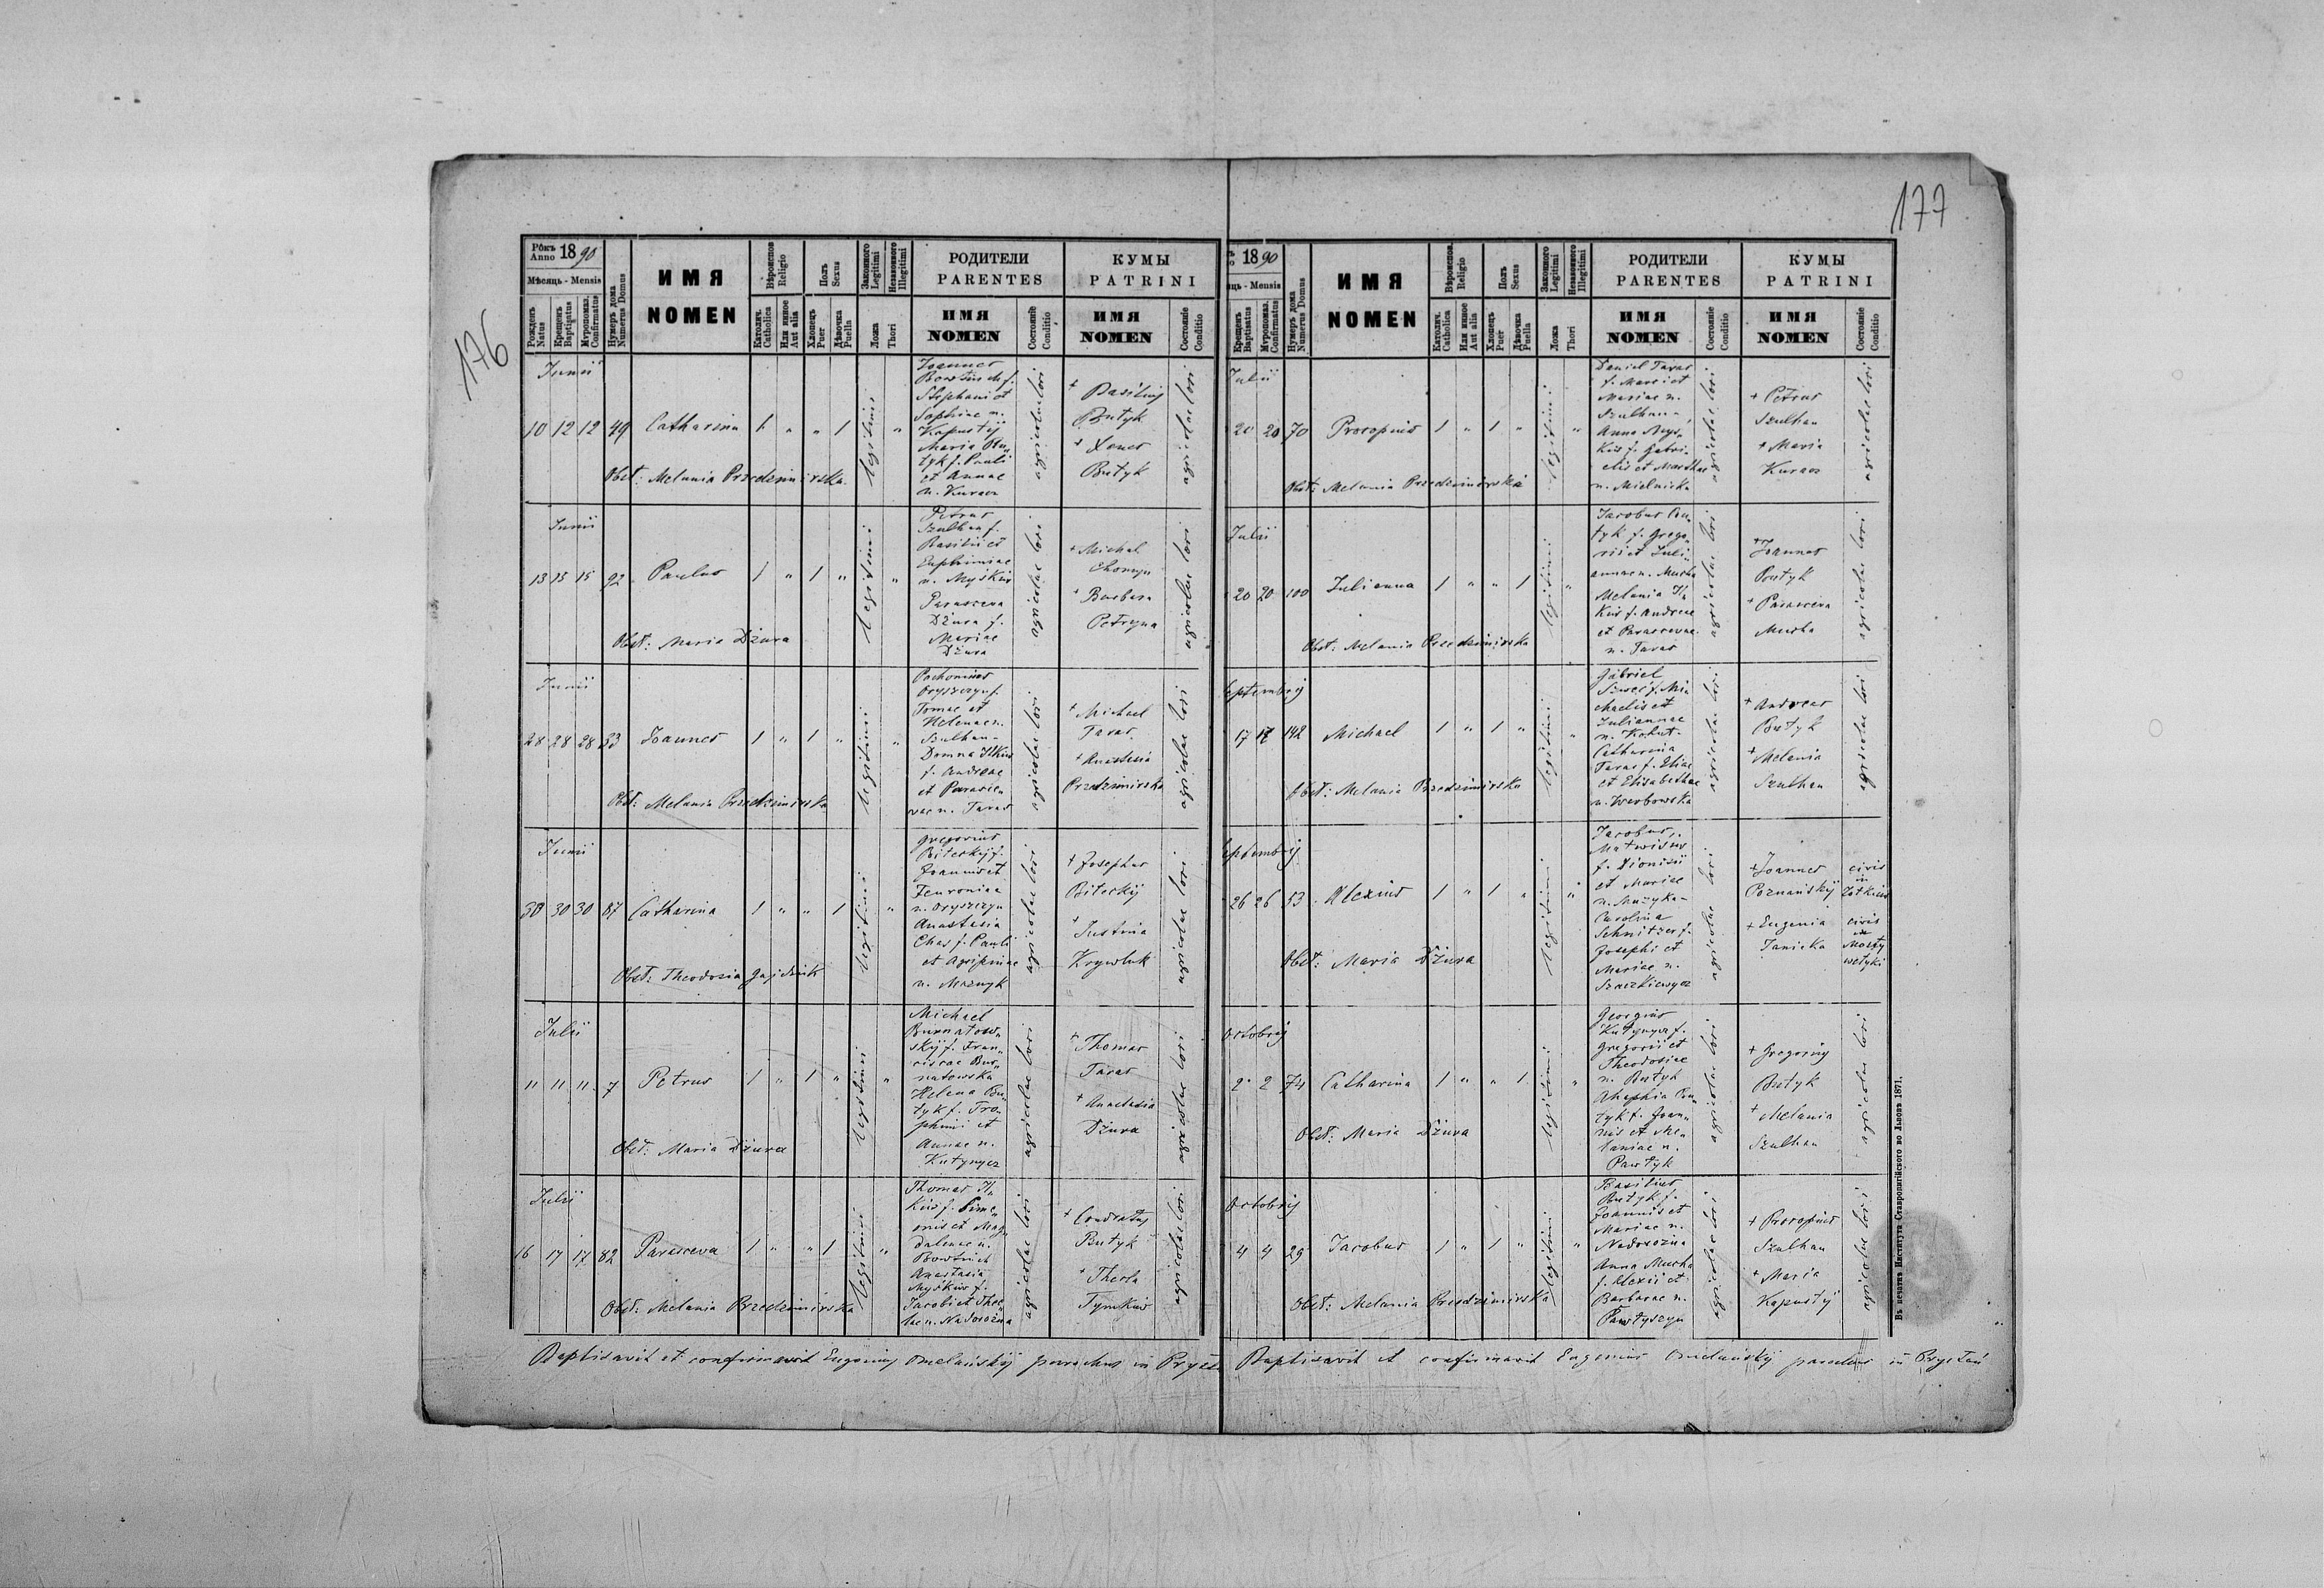 176
Рôкъ Anno 1890
Мѣсяць - Mensis
Рожденъ Natus
Крещенъ Baptisatus
Муропомаз. Confirmatus
Нумеръ дома Numerus Domus
ИМЯ
NOMEN
Вѣроиспов. Religio
Католич. Catholica
Или иное Aut alia
Полъ Sexus
Хлопець Puer
Дѣвочка Puella
Законного Legitimi
Незаконного Illegitimi
Ложа Thori
РОДИТЕЛИ
PARENTES
ИМЯ
NOMEN
Состояніе Conditio
КУМЫ
PATRINI
ИМЯ
NOMEN
Состояніе Conditio
Junii
10 12 12 49 Catharina 1 " " 1 legitimi "
Joannes
Stephani et
Sophiae n.
Kapustij
Maria Bu„
tyk f. Pauli
et Annae
n. Kuracz
agricolae loci
+ Basilius
Butyk
+ Xenes
Butyk
agricolae loci
Obst: Melania Przedzimirska
Junii
13 15 15 92 Paulus 1 " 1 " legitimi "
Petrus
Szulhan f.
Basilii et
Euphimiae
n. Myskiw
Parasceva
Dżura f.
Mariae
Dżura
agricolae loci
+ Michal
Chomyn
+ Barbara
Petryna
agricolae loci
Obst: Maria Dżura
Junii
28 28 28 33 Joannes 1 " 1 " legitimi "
Pachomius
Oryszczyn f.
Tomae et
Helenae n.
Szulhan -
Domna Ilkiw
f. Andreae
et Parasce„
vae n. Taras
agricolae loci
+ Michael
Taras
+ Anastasia
Przedzimirska
agricolae loci
Obst: Melania Przedzimirska
Junii
30 30 30 87 Catharina 1 " " 1 legitimi "
Gregorius
Biteckij f.
Joannis et
Feuroniae
n. Oryszczyn
Anastasia
Chas f. Pauli
et Agripinae
n. Maznyk
agricolae loci
+ Josephus
Biteckij
+ Justina
Krywluk
agricolae loci
Obst: Theodosia Gajdiuk
Julii
11 11 11 7 Petrus 1 " 1 " legitimi "
Michael
Burnatow„
skij f. Fran„
ciscae Bur„
natowska
Helena Bu„
tyk f. Tro„
phimi et
Annae n.
Kutynycz
agricolae loci
+ Thomas
Taras
+ Anastasia
Dżura
agricolae loci
Obst: Maria Dżura
Julii
16 17 17 82 Parasceva 1 " " 1 legitimi "
Thomas Il„
kiw f. Sime„
onis et Mag„
dalenae n.
Bowtrich
Anastasia
Myskiw f.
Jacobi et Thec„
lae n. Nadorożna
agricolae loci
+ Condratus
Butyk
+ Thecla
Tymkiw
agricolae loci
Obst: Melania Przedzimirska
Baptisavit et confirmavit Eugenius Omelańskij parochus in
177
1890
Mensis
Крещенъ Baptisatus
Муропомаз. Confirmatus
Нумеръ дома Numerus Domus
ИМЯ
NOMEN
Вѣроиспов. Religio
Католич. Catholica
Или иное Aut alia
Полъ Sexus
Хлопець Puer
Дѣвочка Puella
Законного Legitimi
Незаконного Illegitimi
Ложа Thori
РОДИТЕЛИ
PARENTES
ИМЯ
NOMEN
Состояніе Conditio
КУМЫ
PATRINI
ИМЯ
NOMEN
Состояніе Conditio
Julii
20 20 70 Procopius 1 " 1 " legitimi "
Daniel Taras
f. Marci et
Mariae n.
Szulhan -
Anna Mys„
kiw f. Gabri„
elis et Marthae
n. Mielnicka
agricolae loci
+ Petrus
Szulhan
+ Maria
Kuracz
agricolae loci
Obst: Melania Przedzimirska
Julii
20 20 100 Julianna 1 " " 1 legitimi "
Jacobus Bu„
tyk f. Grego„
rii et Juli„
annae n. Mucha
Melania Il„
kiw f. Andreae
et Parascevae
n. Taras
agricolae loci
+ Joannes
Butyk
+ Parasceva
Mucha
agricolae loci
Obst: Melania Przedzimirska
Septembrij
17 17 142 Michael 1 " 1 " legitimi "
Gabriel
Szweć f. Mi„
chaelis et
Juliannae
n. Kohut -
Catharina
Taras f. Eliae
et Elisabethae
n. Werbowska
agricolae loci
+ Andreas
Butyk
+ Melania
Szulhan
agricolae loci
Obst: Melania Przedzimirska
Septembrij
26 26 53 Alexius 1 " 1 " legitimi "
Jacobus
Matwisiw
f. Dionisii
et Mariae
n. Muzyka -
Carolina
Schnitzer f.
Josephi et
Mariae n.
Szaczkiewycz
agricolae loci
+ Joannes
Poznańskij
civis
in
Żołkiew
+ Eugenia
Janicka
civis
in
Mosty
wełyki
Obst: Maria Dżura
Octobrij
2 2 74 Catharina 1 " " 1 legitimi "
Georgius
Kutynycz f.
Gregorii et
Theodosiae
n. Butyk
Ahaphia Bu„
tyk f. Joan„
nis et Me„
laniae n.
Pawtyk
agricolae loci
+ Gregorius
Butyk
+ Melania
Szulhan
agricolae loci
Obst: Maria Dżura
Octobrij
4 4 29 Jacobus 1 " 1 " legitimi "
Basilius
Butyk f.
Joannis et
Mariae n.
Nadorożna
Anna Mucha
f. Alexii et
Barbarae n.
agricolae loci
+ Procopius
Szulhan
+ Maria
Kapustij
agricolae loci
Obst: Melania Przedzimirska
Baptisavit et confirmavit Eugenius Omelańskij parochus in
Въ печатнѣ Института Ставропигійского во Львовѣ 1871.